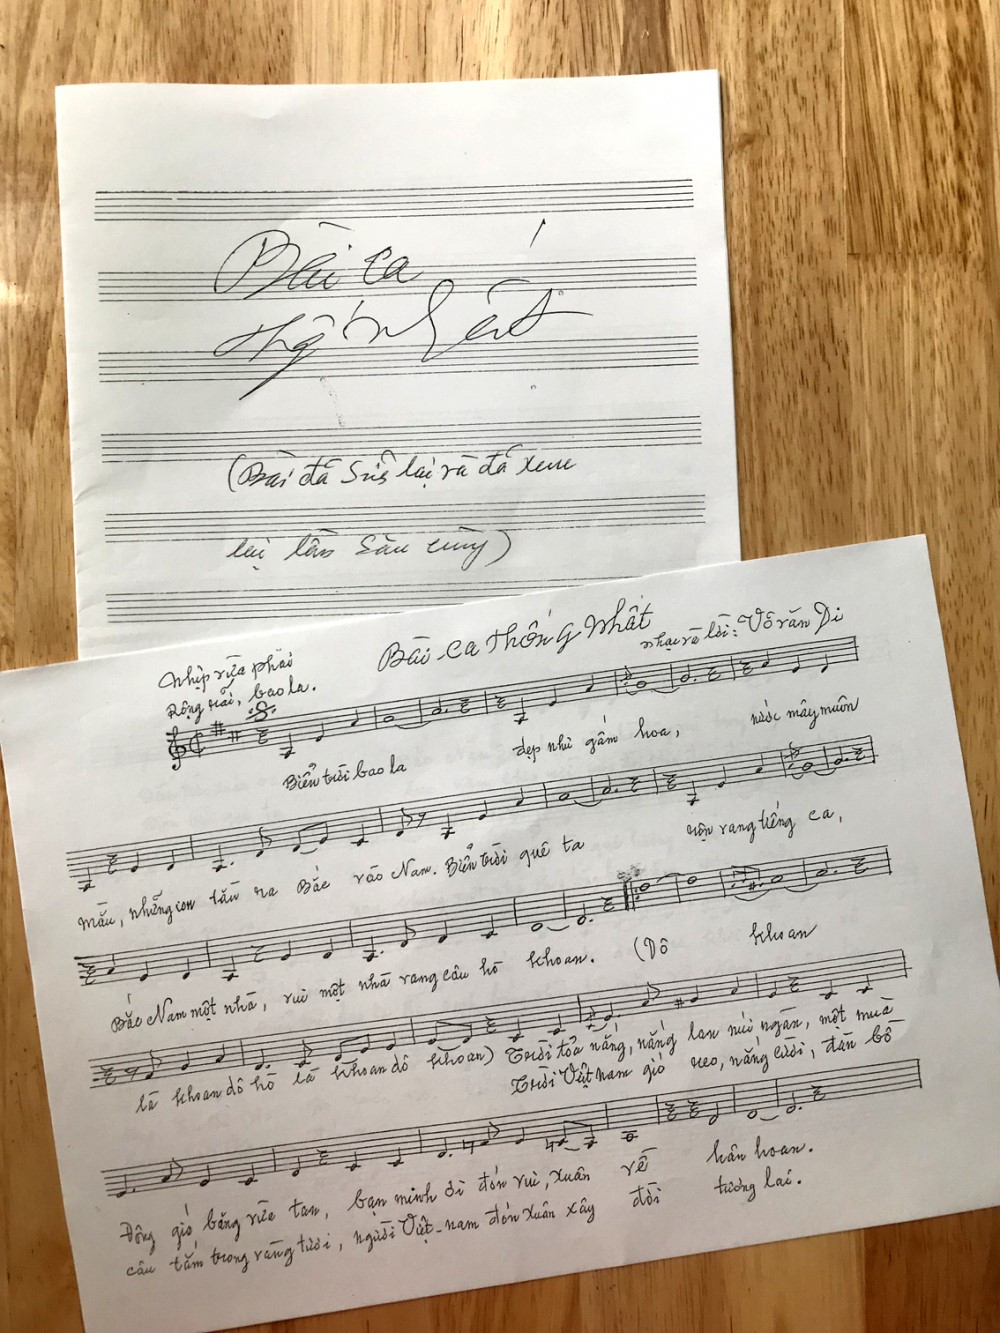 Bài ca
thống nhất
(Bài đã sửa lại và đã xem
lại lần sau cùng)
Bài ca thống nhất
Nhịp vừa phải
Rộng rãi, bao la.
nhạc và lời: Võ văn Di
Biển trời bao la đẹp như gấm hoa, nước mây muôn
mầu, những con tầu ra Bắc vào Nam. Biển trời quê ta rộn rang tiếng ca,
Bắc Nam một nhà, vui một nhà vang câu hò khoan. (Dô khoan
là khoan dô hò là khoan dô khoan) Trời tỏa nắng, nắng lan núi ngàn, một mùa
Trời Việt nam gió reo, nắng cười, đàn bồ
Đông gió băng vừa tan, bạn mình ơi đón vui, xuân về hân hoan.
câu tắm trong vầng tươi, người Việt-nam đón xuân xây đời tương lai.